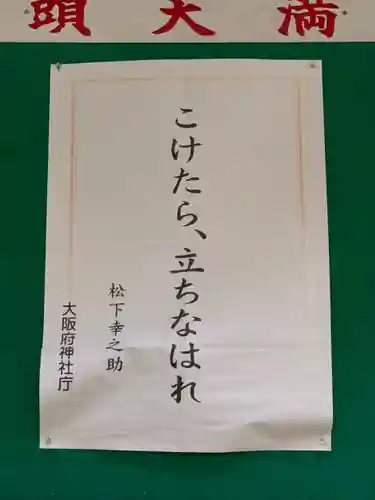 満天頭
こけたら、立ちなはれ
松下幸之助
大阪府神社庁